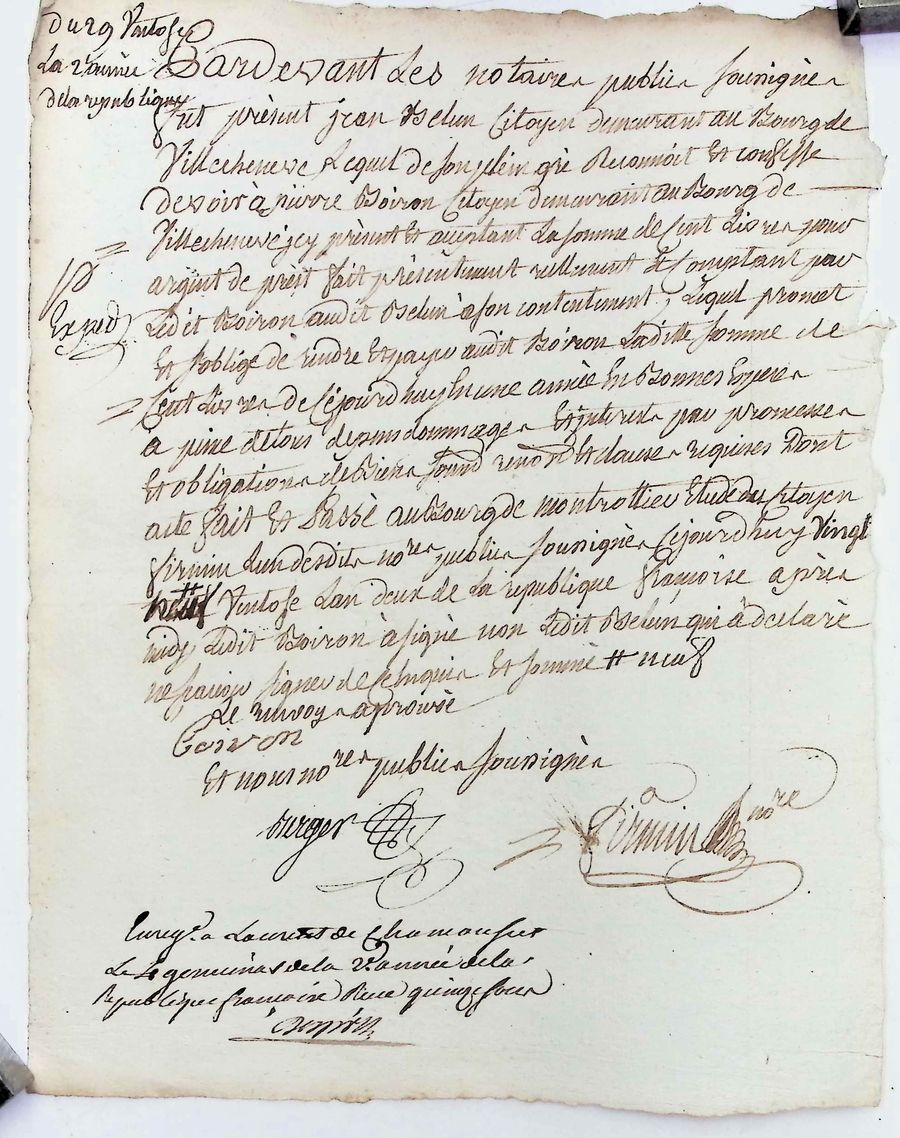 du 29 Ventose
La 2e année
dela republique
Pardevant Les notaires publics soussignés
fut présent jean Belun Citoyen demeurant au Bourg de
Villecheneve Lequel de son plein gré Reconnoit Et confesse
devoir à pierre Boiron Citoyen demeurant au Bourg de
Villecheneve jcy présent Et acceptant La somme de Cent Livres pour
argent de prest fait présentement reellement Et Comptant par
Expéd
Ledit Boiron audit Belun à son contentement, Lequel promet
Et s'oblige de rendre Et payer audit Boiron Laditte somme de
Cent Livres de Cejourdhuy En une année En Bonnes Espèces
a peine de tous depens dommages Et jnterets par promesses
Et obligations de Biens soumd renond Et clauses requises Dont
acte fait Et Passé au Bourg de montrottier Etude du Citoyen
firmin Lun desdits nores publics soussignés Cejourdhuy Vingt
# Ventose Lan deux de La republique françoise après
midy Ledit Boiron à signé non Ledit Belun qui à déclaré
ne sçavoir signer de Ce Enquis Et sommé # neuf
Le renvoy approuvé
Boiron
Et nous nores publics soussignés
Burger
Firmin nore
Enregé a Laurent de Chamousset
Le 4 germinal de la 2e année de la
Republique francaise Recu quinze sous